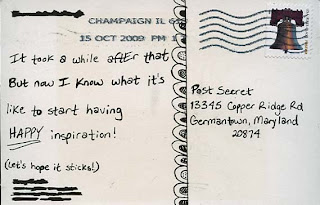 CHAMPAIGN IL 61
15 OCT 2009 PM 1
It took a while after that
But now I know what it's
like to start having
HAPPY inspiration!
(Let's hope it sticks!)
Post Secret
13345 Copper Ridge Rd
Germantown, Maryland
20874